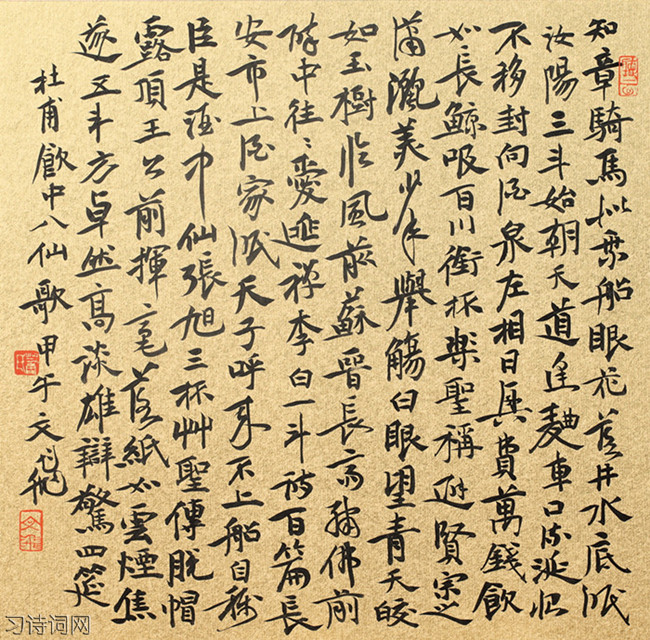 知章騎馬似乘船眼花落井水底眠
汝陽三斗始朝天道逢麴車口流涎恨
不移封向酒泉左相日興費萬錢飲
如長鯨吸百川銜杯樂聖稱避賢宗之
瀟灑美少年舉觴白眼望青天皎
如玉樹臨風前蘇晉長齋繡佛前
醉中往〻愛逃禪李白一斗詩百篇長
安市上酒家眠天子呼來不上船自稱
臣是酒中仙張旭三杯艸聖傳脫帽
露頂王公前揮毫落紙如雲煙焦
遂五斗方卓然高談雄辯驚四筵
杜甫飲中八仙歌甲午文飛
文飛
习诗词网